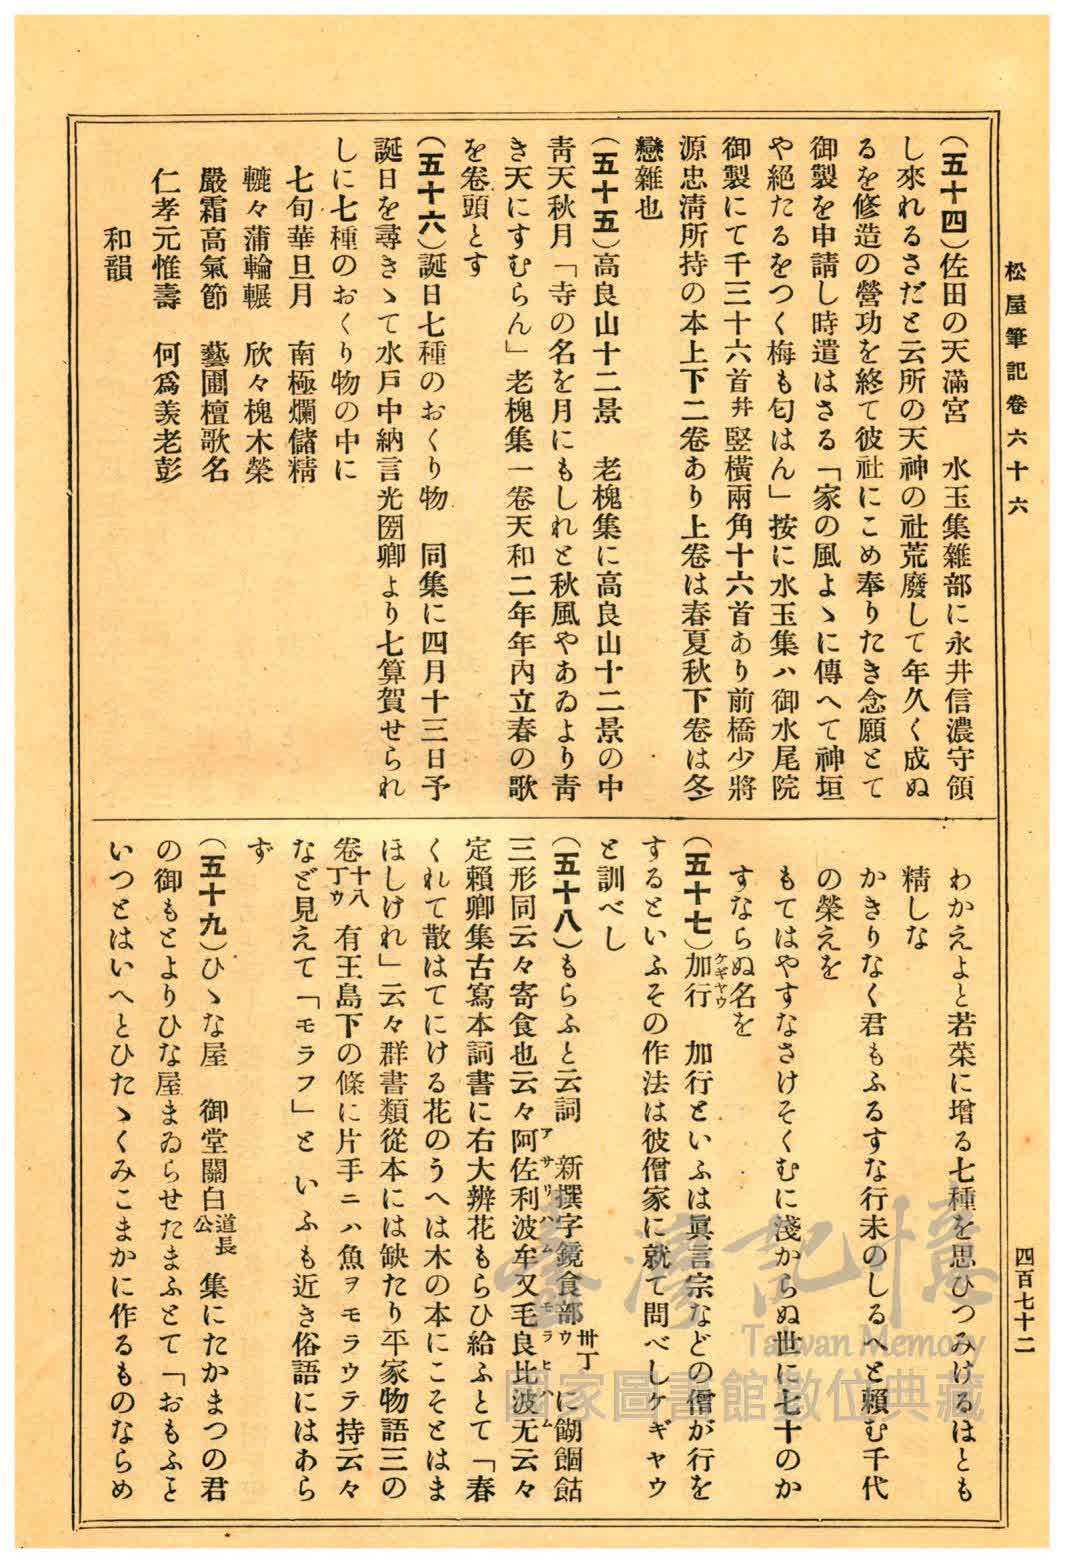 松屋筆記卷六十六
四百七十二
(五十四)佐田の天滿宮　水玉集雜部に永井信濃守領
し來れるさだと云所の天神の社荒廢して年久く成ぬ
るを修造の營功を終て彼社にこめ奉りたき念願とて
御製を申請し時遣はさる「家の風よゝに傳へて神垣
や絕たるをつく梅も匂はん」按に水玉集ハ御水尾院
御製にて千三十六首幷竪橫兩角十六首あり前橋少將
源忠淸所持の本上下二卷あり上卷は春夏秋下卷は冬
戀雜也
(五十五)高良山十二景　老槐集に高良山十二景の中
靑天秋月「寺の名を月にもしれと秋風やあゐより靑
き天にすむらん」老槐集一卷天和二年年內立春の歌
を卷頭とす
(五十六)誕日七種のおくり物　同集に四月十三日予
誕日を尋きゝて水戶中納言光圀卿より七算賀せられ
しに七種のおくり物の中に
七旬華旦月　南極爛儲精
轆々蒲輪輾　欣々槐木榮
嚴霜高氣節　藝圃檀歌名
仁孝元惟壽　何爲羨老彭
和韻
わかえよと若菜に增る七種を思ひつみけるはとも
精しな
かきりなく君もふるすな行末のしるへと賴む千代
の榮えを
もてはやすなさけそくむに淺からぬ世に七十のか
すならぬ名を
(五十七)加行ケギヤウ　加行といふは眞言宗などの僧が行を
するといふその作法は彼僧家に就て問べしケギャウ
と訓べし
(五十八)もらふと云詞　新撰字鏡食部卅丁ウに餬𩜶𩚩
三形同云々寄食也云々阿佐利波牟又毛良比波无云々アサリハムモラヒハム
定賴卿集古寫本詞書に右大辨花もらひ給ふとて「春
くれて散はてにける花のうへは木の本にこそとはま
ほしけれ」云々群書類從本には缺たり平家物語三の
卷十八丁ウ　有王島下の條に片手ニハ魚ヲモラウテ持云々
など見えて「モラフ」と いふも近き俗語にはあら
ず
(五十九)ひゝな屋　御堂關白道長公　集にたかまつの君
の御もとよりひな屋まゐらせたまふとて「おもふこ
いつとはいへとひたゝくみこまかに作るものならめ
臺灣記憶
Taiwan Memory
國家圖書館數位典藏